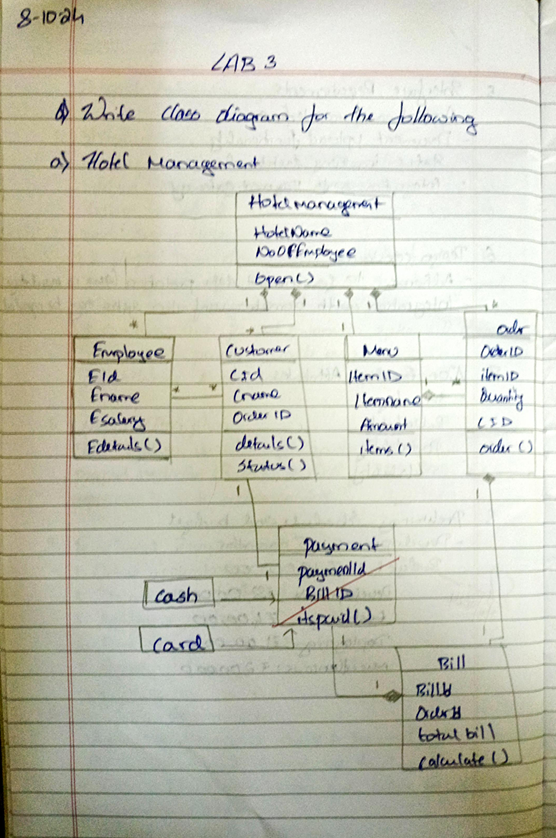 8-10-24
LAB 3
Q) Write class diagram for the following
a) Hotel Management
Hotelmanagement
HotelName
NoOfEmployee
open()
1 1 1 1
* * 1 *
Employee
EId
Ename
Esalary
Edetails()
* *
Customer
Cid
Cname
Order ID
details()
Status()
Menu
ItemID
Itemname
Amount
items()
1 *
order
OrderID
itemID
Quantity
CID
order()
1 1
payment
paymentId
Bill ID
itspaid()
1
Cash
Card
1
1 1
Bill
BillId
OrderId
total bill
calculate()